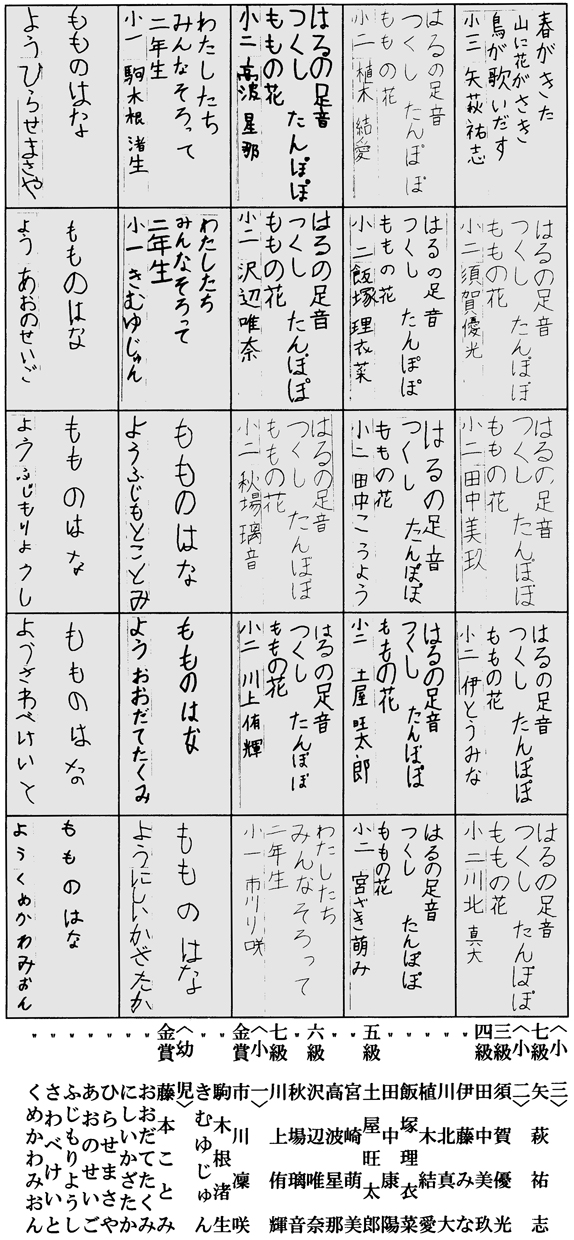 春がきた
山に花がさき
鳥が歌いだす
小三 矢萩祐志
はるの足音
つくし たんぽぽ
ももの花
小二 須賀優光
はるの足音
つくし たんぽぽ
ももの花
小二 田中美玖
はるの足音
つくし たんぽぽ
ももの花
小二 伊とうみな
はるの足音
つくし たんぽぽ
ももの花
小二 川北真大
はるの足音
つくし たんぽぽ
ももの花
小二 植木結愛
はるの足音
つくし たんぽぽ
ももの花
小二 飯塚理衣菜
はるの足音
つくし たんぽぽ
ももの花
小二 田中こうよう
はるの足音
つくし たんぽぽ
ももの花
小二 土屋旺太郎
はるの足音
つくし たんぽぽ
ももの花
小二 宮ざき萌み
はるの足音
つくし たんぽぽ
ももの花
小二 高波星那
はるの足音
つくし たんぽぽ
ももの花
小二 沢辺唯奈
はるの足音
つくし たんぽぽ
ももの花
小二 秋場璃音
はるの足音
つくし たんぽぽ
ももの花
小二 川上侑輝
わたしたち
みんなそろって
二年生
小一 市川り咲
わたしたち
みんなそろって
二年生
小一 駒木根渚生
わたしたち
みんなそろって
二年生
小一 きむゆじゅん
もものはな
ようふじもとことみ
もものはな
よう おおだてたくみ
もものはな
ようにしいかざたか
もものはな
ようひらせまさや
もものはな
よう あおのせいご
もものはな
ようふじもりようし
もものはな
ようさわべけいと
もものはな
ようくめかわみおん
〈小三〉
七級 矢萩祐志
〈小二〉
三級 須賀優光
四級 田中美玖
〃 伊藤みな
〃 川北真大
〃 植木結愛
〃 飯塚理衣菜
〃 田中康陽
五級 土屋旺太郎
〃 宮崎萌美
〃 高波星那
六級 沢辺唯奈
〃 秋場璃音
七級 川上侑輝
〈小一〉
金賞 市川凜咲
〃 駒木根渚生
〃 きむゆじゅん
〈幼児〉
金賞 藤本ことみ
〃 おおだてたくみ
〃 にしいかざたか
〃 ひらせまさや
〃 あおのせいご
〃 ふじもりようし
〃 さわべけいと
〃 くめかわみおん